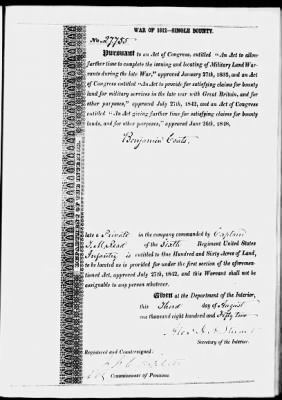 WAR OF 1812—SINGLE BOUNTY.
No. 27755
Pursuant to an Act of Congress, entitled "An Act to allow
further time to complete the issuing and locating of Military Land War-
rants during the late War," approved January 27th, 1835, and an Act
of Congress entitled "An Act to provide for satisfying claims for bounty
land for military services in the late war with Great Britain, and for
other purposes," approved July 27th, 1842, and an Act of Congress
entitled "An Act giving further time for satisfying claims for bounty
lands, and for other purposes," approved June 26th, 1848,
Benjamin Coats,
late a Private in the company commanded by Captain
Read of the Sixth Regiment United States
Infantry is entitled to One Hundred and Sixty Acres of Land,
to be located as is provided for under the first section of the aforemen-
tioned Act, approved July 27th, 1842, and this Warrant shall not be
assignable to any person whatever.
Given at the Department of the Interior,
this Third day of August
one thousand eight hundred and Fifty two
Alex. H. H. Stuart
Secretary of the Interior.
Registered and Countersigned:
Commissioner of Pensions.